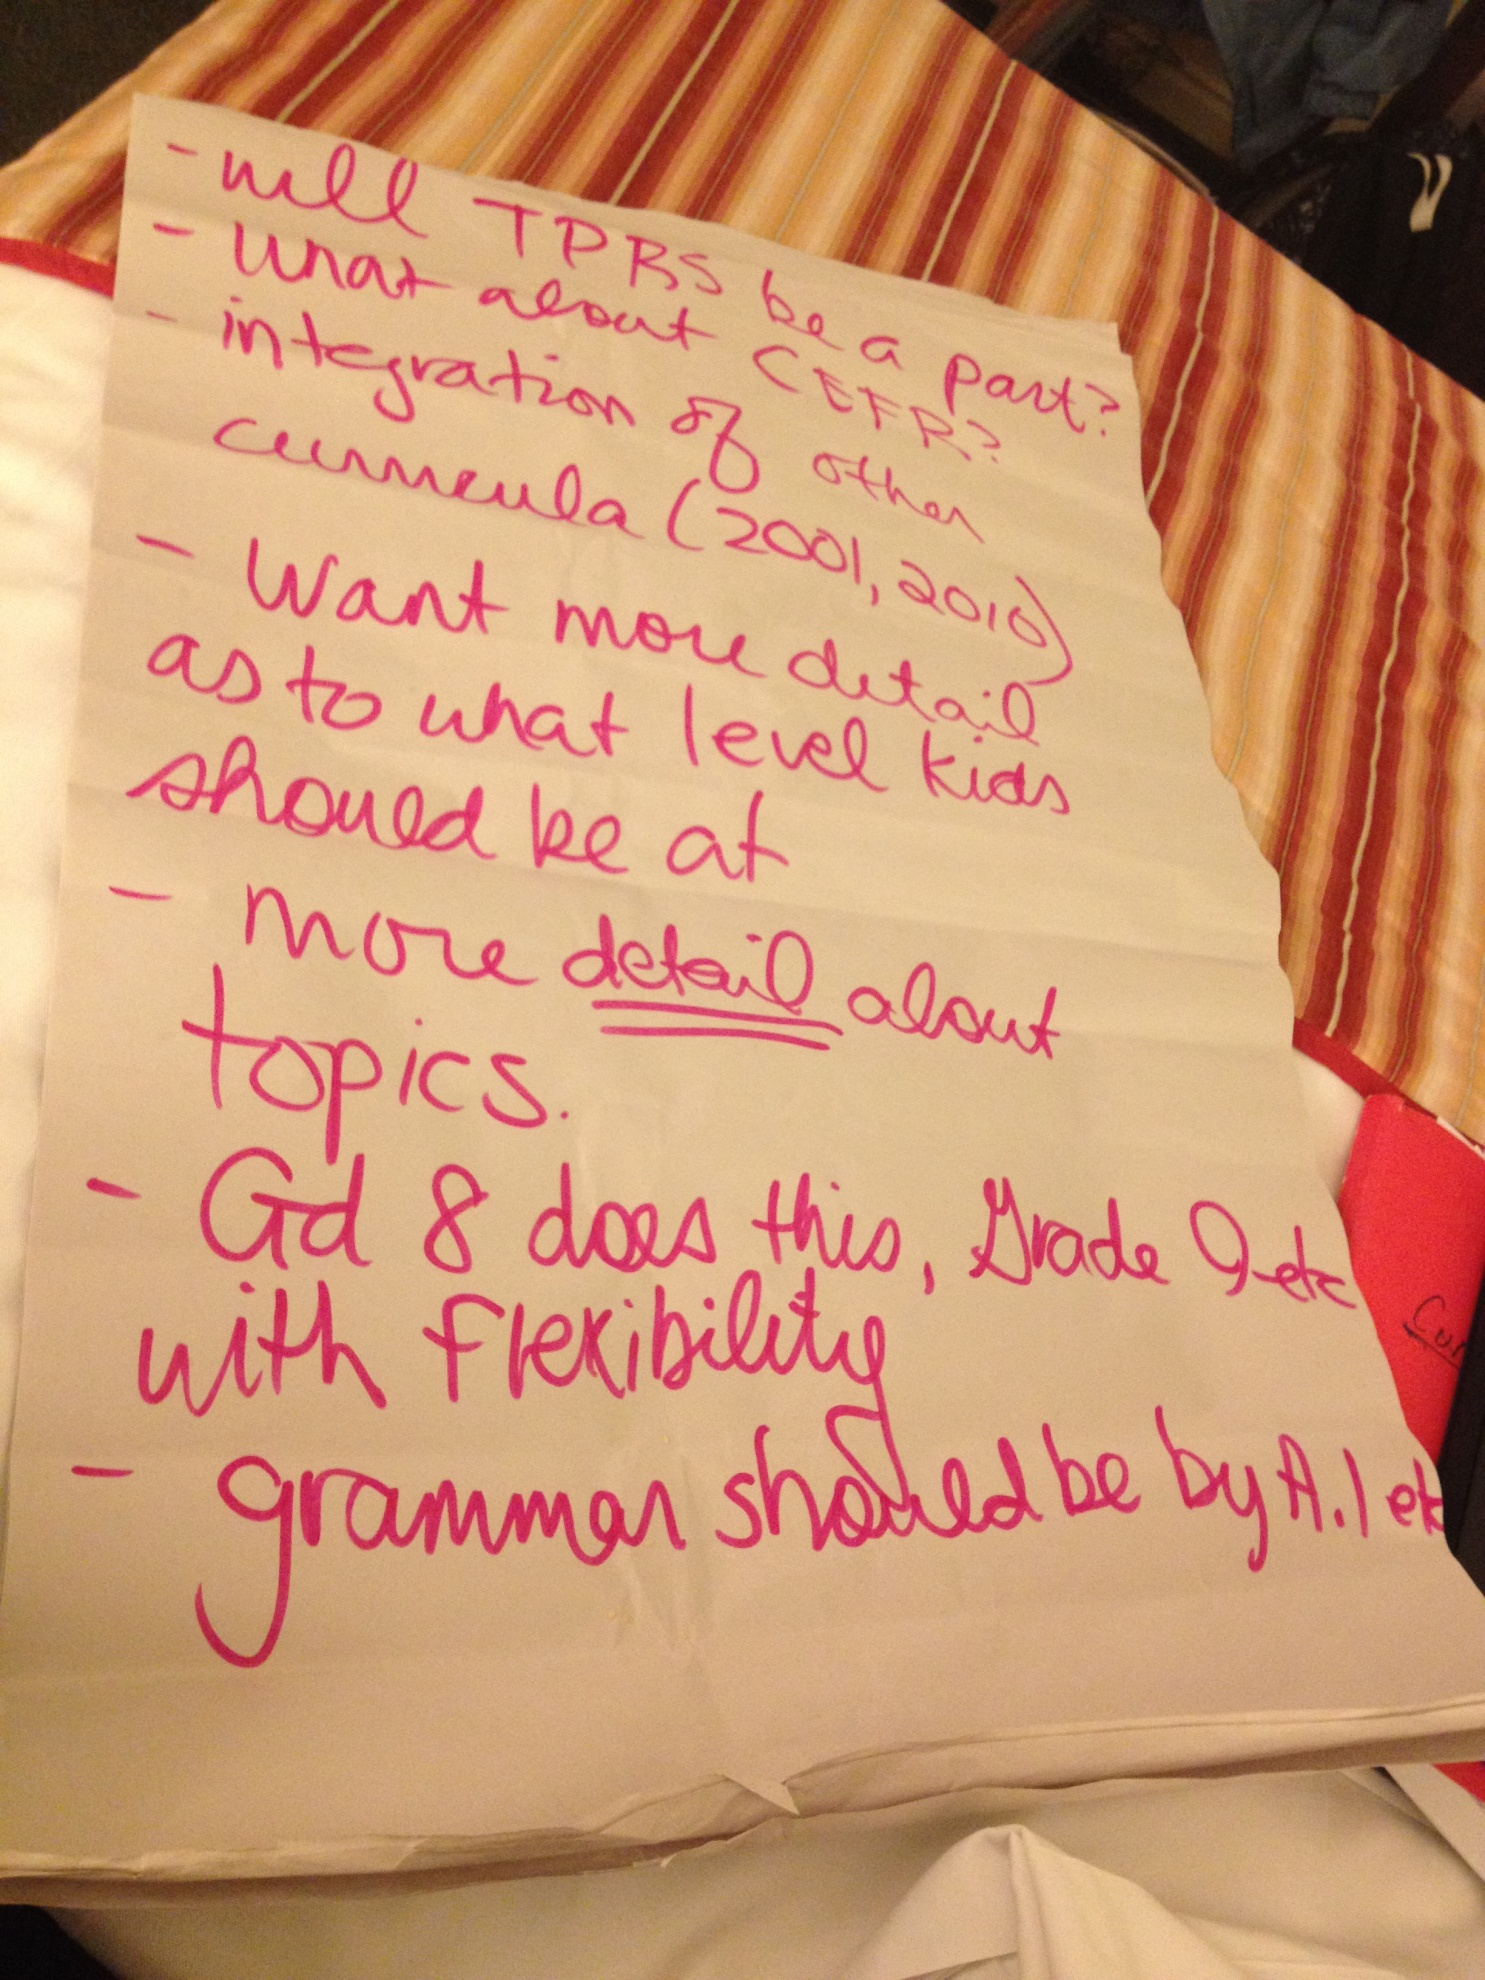 - will TPRS be a part?
- What about CEFR?
- integration of other
curricula (2001, 2010)
- Want more detail
as to what level kids
should be at
- more detail about
topics.
- Gd 8 does this, Grade 9 etc
with flexibility
- grammar should be by A.1 etc